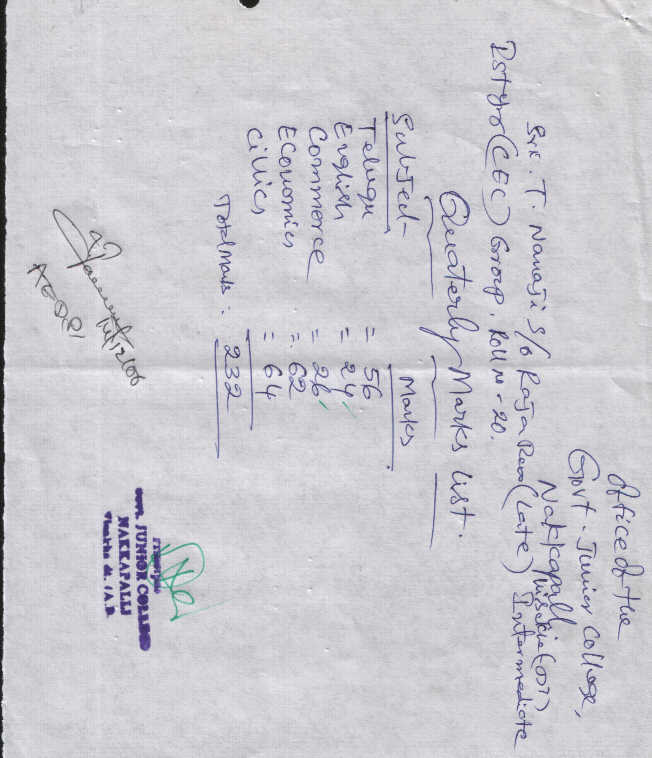 Office of the
Govt. Junior College,
Nakkapalli
Visakha (DT)
Sri. T. Nanaji S/o Raja Rao (Late) Intermediate
Ist yr (CEC) Group. Roll No - 20.
Quaterly Marks List.
Subject Marks
Telugu = 56
English = 24
Commerce = 26
Economics = 62
Civics = 64
Total Marks : 232
14/12/06
Principal
GOVT. JUNIOR COLLEGE
NAKKAPALLI
Visakha dt. (A.P.